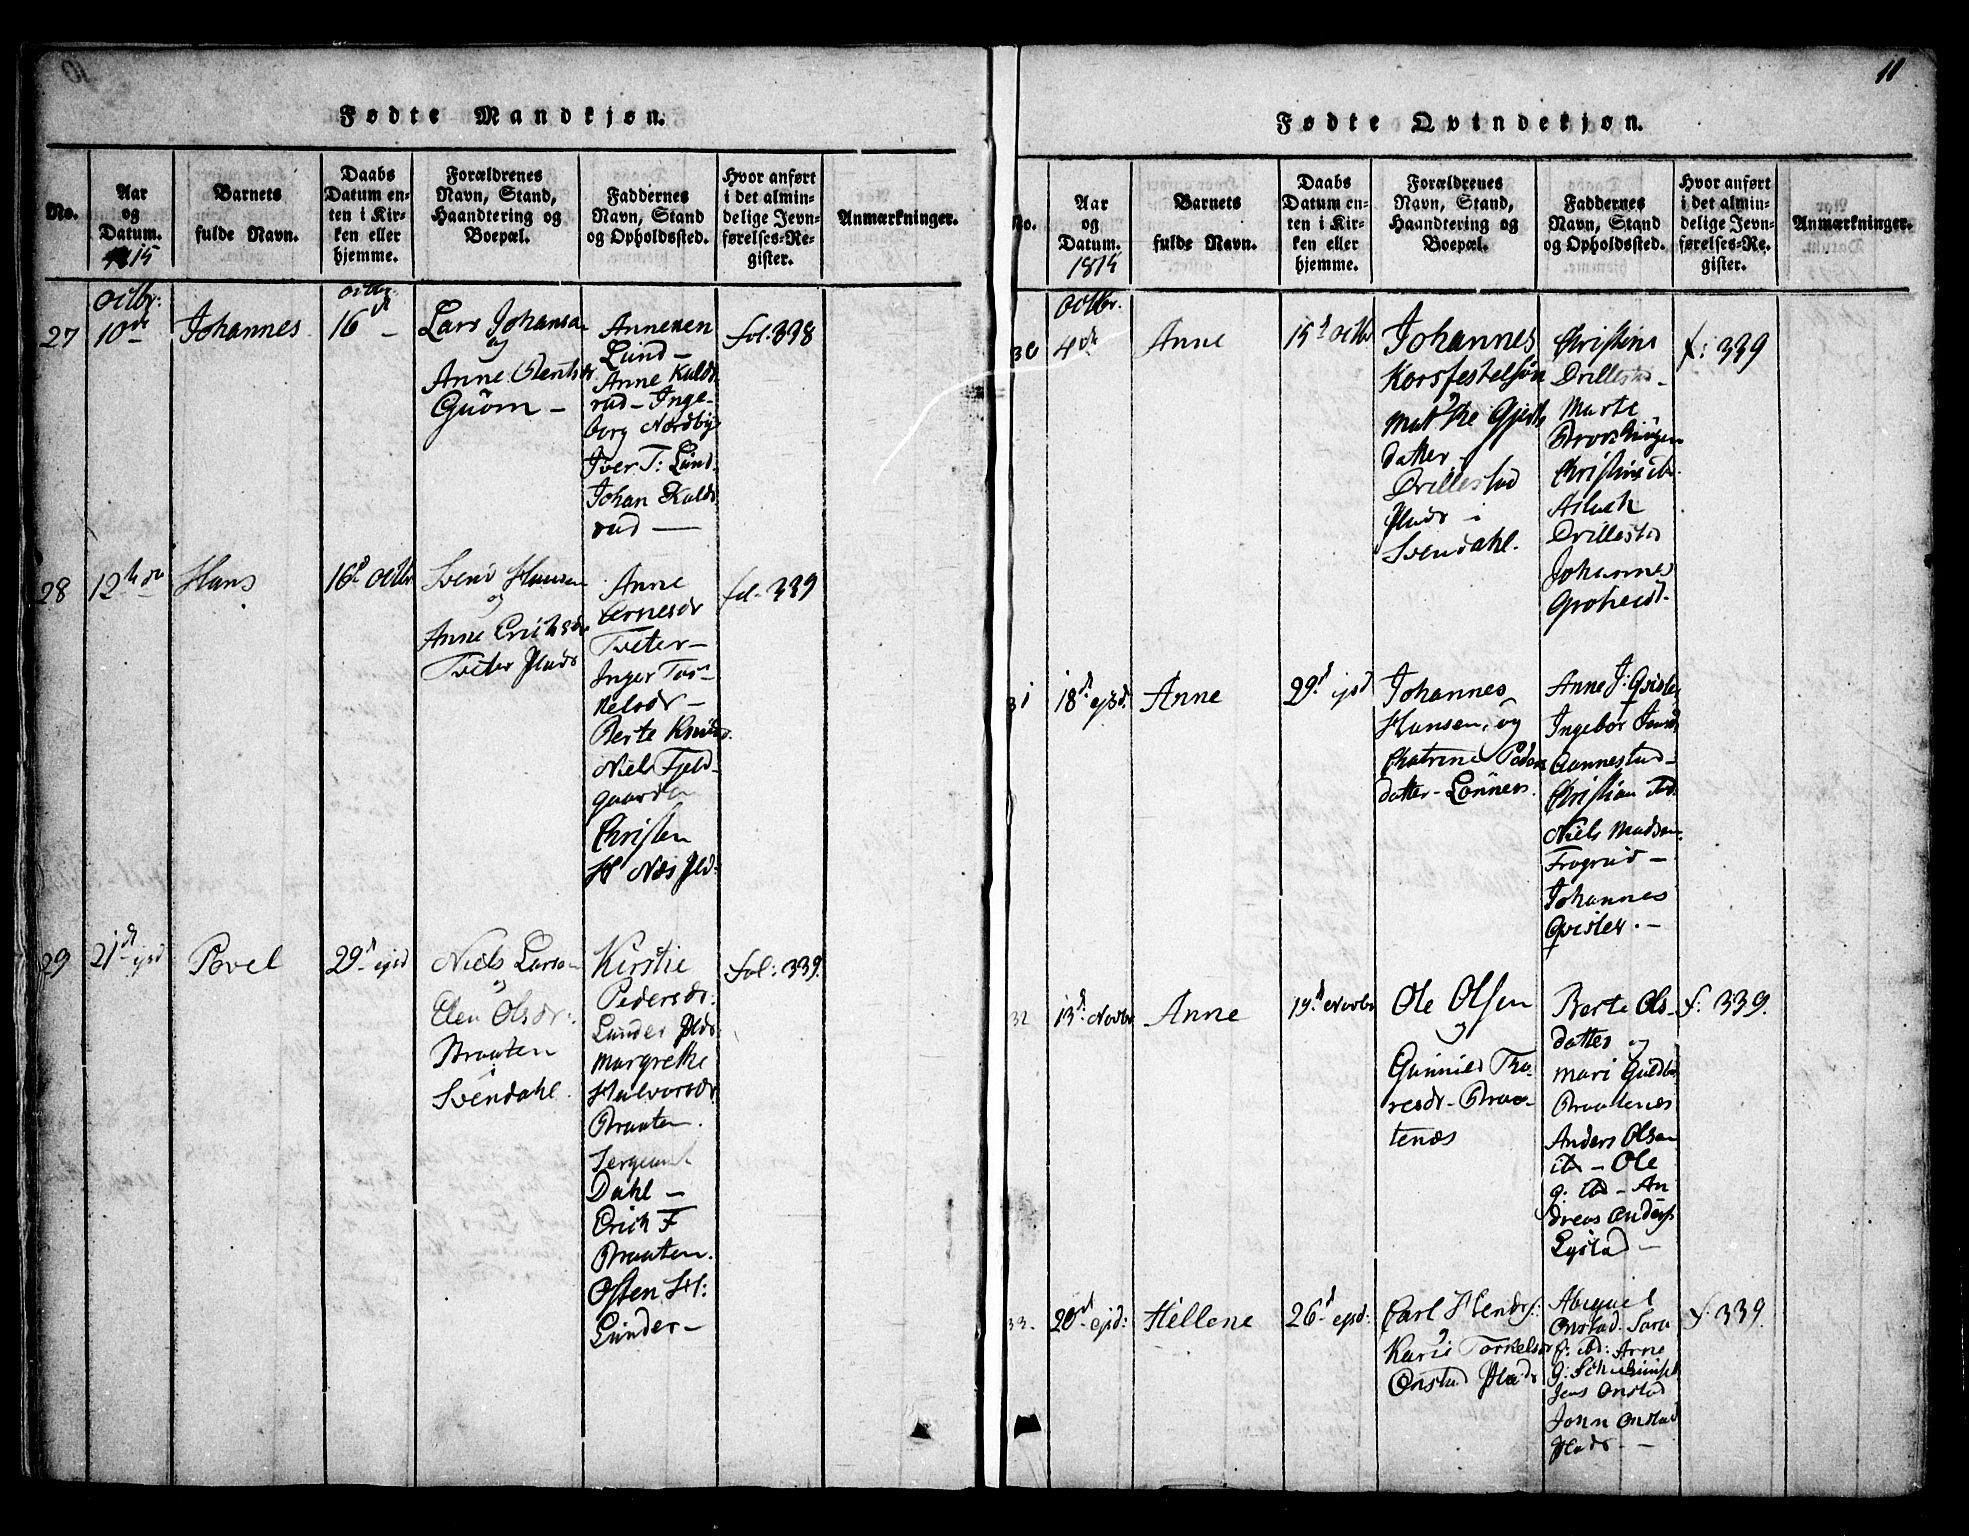 11
Fødte Mandkjøn.
No.
Aar
og
Datum.
1815
Barnets
fulde Navn.
Daabs
Datum en-
ten i Kir-
ken eller
hjemme.
Forældrenes
Navn, Stand,
Haandtering og
Boepæl.
Faddernes
Navn, Stand
og Opholdssted.
Hvor anført
i det almin-
delige Jevn-
førelses-Re-
gister.
Anmærkninger.
27
Octbr:
10de
Johannes
octbr.
16d
Lars Johansen
og
Anne
Lund
Anne
rud - Inge-
borg Nordbye
Iver T: Lund
Johan
rud
fol: 338
28
12te
Hans
16d Octbr
Svend Hansen
og
Anne Erichsdr
Tveter Plads
Anne
Arnesdr
Tveter
Inger Tor-
kelsdr
Berte
Niels Fjeld-
gaarden
Christen
H Næs Plds
fol. 339
29
21d ejsd
Povel
29d ejsd
Niels Larsen
og
Elen Olsdr.
Braaten
i
Svendahl.
Kirstie
Pedersdr.
Lunder Plds.
Margrethe
Halvorsdr
Braaten.
Sergeant
Dahl
Erich F
Braaten.
Osten H:
Lunder
fol: 339.
Fødte Qvindekjøn.
No.
Aar
og
Datum.
1815
Barnets
fulde Navn.
Daabs
Datum en-
ten i Kir-
ken eller
hjemme.
Forældrenes
Navn, Stand,
Haandtering og
Boepæl.
Faddernes
Navn, Stand
og Opholdssted.
Hvor anført
i det almin-
delige Jevn-
førelses-Re-
gister.
Anmærkninger.
30
Octbr.
4de
Anne
15d octbr
Johannes
Korsfestelsøn
datter
Drillestad
Plads i
Svendahl.
Christine
Drillestad
Marte
Aslack
Drillestad
Johannes
f: 339
31
18d ejsd.
Anne
29d ejsd
Johannes
Hansen, og
Chatrine
datter - Lønnes.
Anne J: Qvisler
Ingebor
Aannestad
Christian
Niels Madsen
Frogrud
Johannes
Qvisler.
32
13d Novbr
Anne
19d Novbr
Ole Olsen
og
Gunnild Tho-
resdr. Braa-
tenæs
Berte Ols-
datter og
Mari
Braatenæs
Anders Olsen
ibd - Ole
g: ibd - An
dreas Anders
Lystad
f: 339.
33.
20d ejsd:
Hellene
26d ejsd:
Carl
og
Karie Torkelsdr
Onstad Plads
Abigael
Onstad. Sara
ibd: Arne
Jens Onstad
John Onstad
Plads
f: 339.